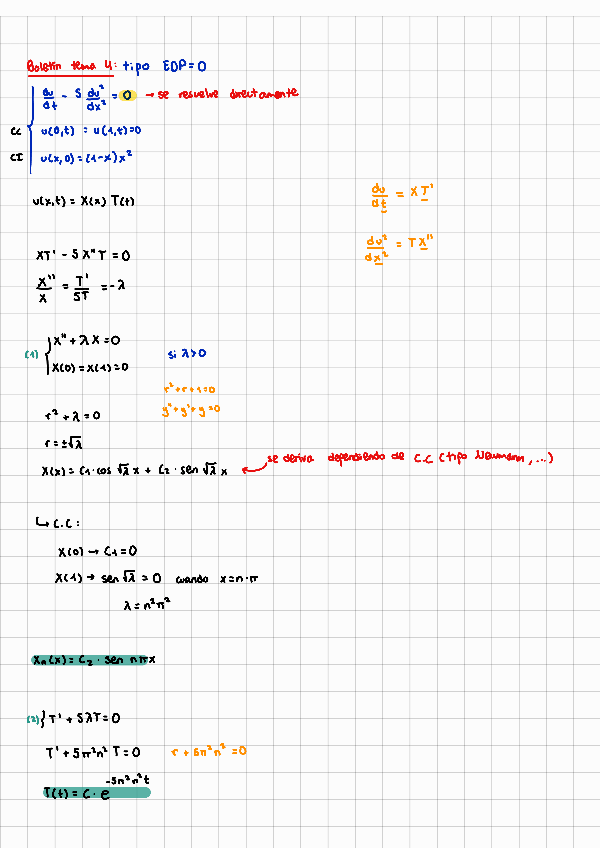 Boletín tema 4: tipo EDP=0
du/dt - 5 du²/dx² = 0 → se resuelve directamente
CC u(0,t) = u(1,t)=0
CI u(x,0) = (1-x)x²
u(x,t) = X(x) T(t)
du/dt = XT'
du²/dx² = TX''
XT' - 5X''T = 0
X''/X = T'/5T = -λ
(1) X'' + λX = 0
si λ>0
X(0) = X(1) = 0
r²+r+1=0
y''+y'+y=0
r² + λ = 0
r = ±√λ
X(x) = C1·cos √λ x + C2·sen √λ x
se deriva dependiendo de C.C (tipo Neumann, ...)
↳ C.C:
X(0) → C1 = 0
X(1) → sen √λ = 0 cuando x=n·π
λ = n²π²
Xn(x) = C2 · sen nπx
(2) T' + 5λT = 0
T' + 5π²n² T = 0
r + 5π²n² = 0
T(t) = C · e^-5π²n²t